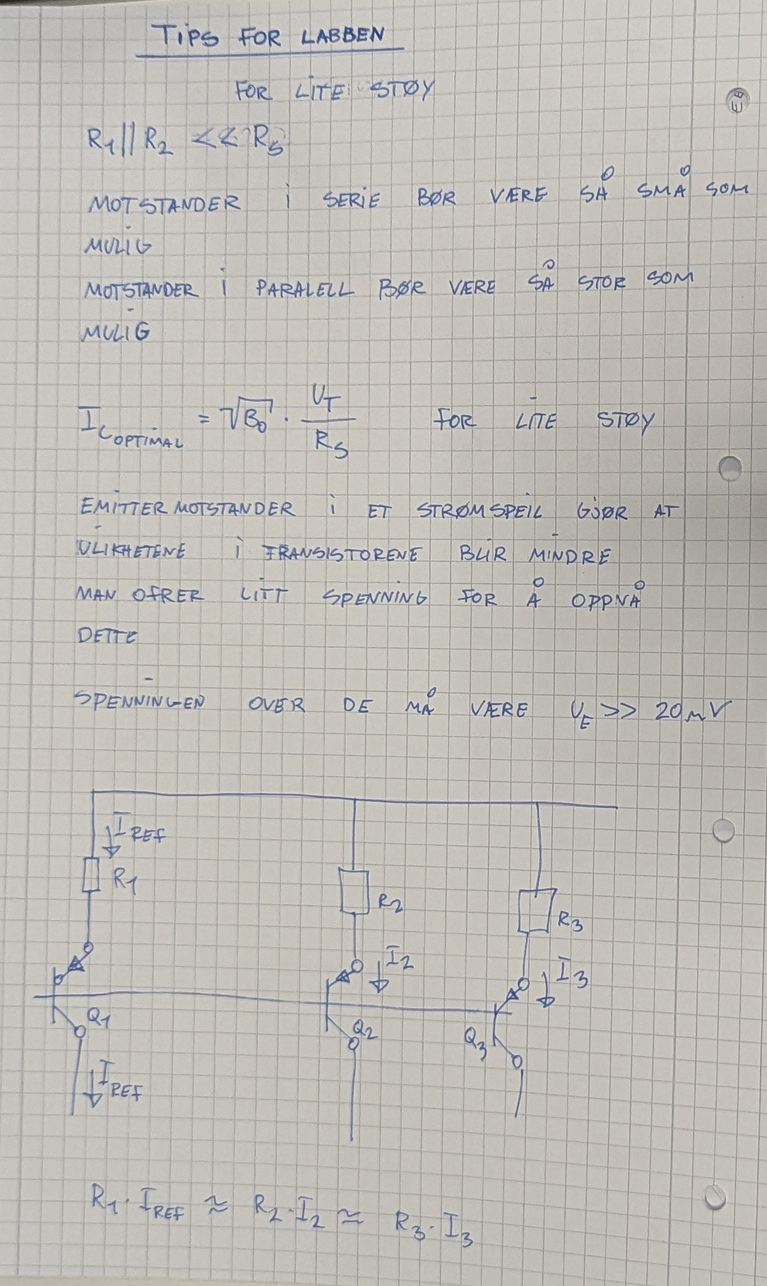 TIPS FOR LABBEN
FOR LITE STØY
R₁||R₂ << R_S
MOTSTANDER I SERIE BØR VÆRE SÅ SMÅ SOM
MULIG
MOTSTANDER I PARALELL BØR VÆRE SÅ STOR SOM
MULIG
I_C OPTIMAL = √B₀ · U_T / R_S FOR LITE STØY
EMITTERMOTSTANDER I ET STRØMSPEIL GJØR AT
ULIKHETENE I TRANSISTORENE BLIR MINDRE
MAN OFRER LITT SPENNING FOR Å OPPNÅ
DETTE
SPENNINGEN OVER DE MÅ VÆRE U_E >> 20mV
I_REF
R₁
R₂
R₃
I₂
I₃
Q₁
Q₂
Q₃
I_REF
R₁·I_REF ≈ R₂·I₂ ≃ R₃·I₃